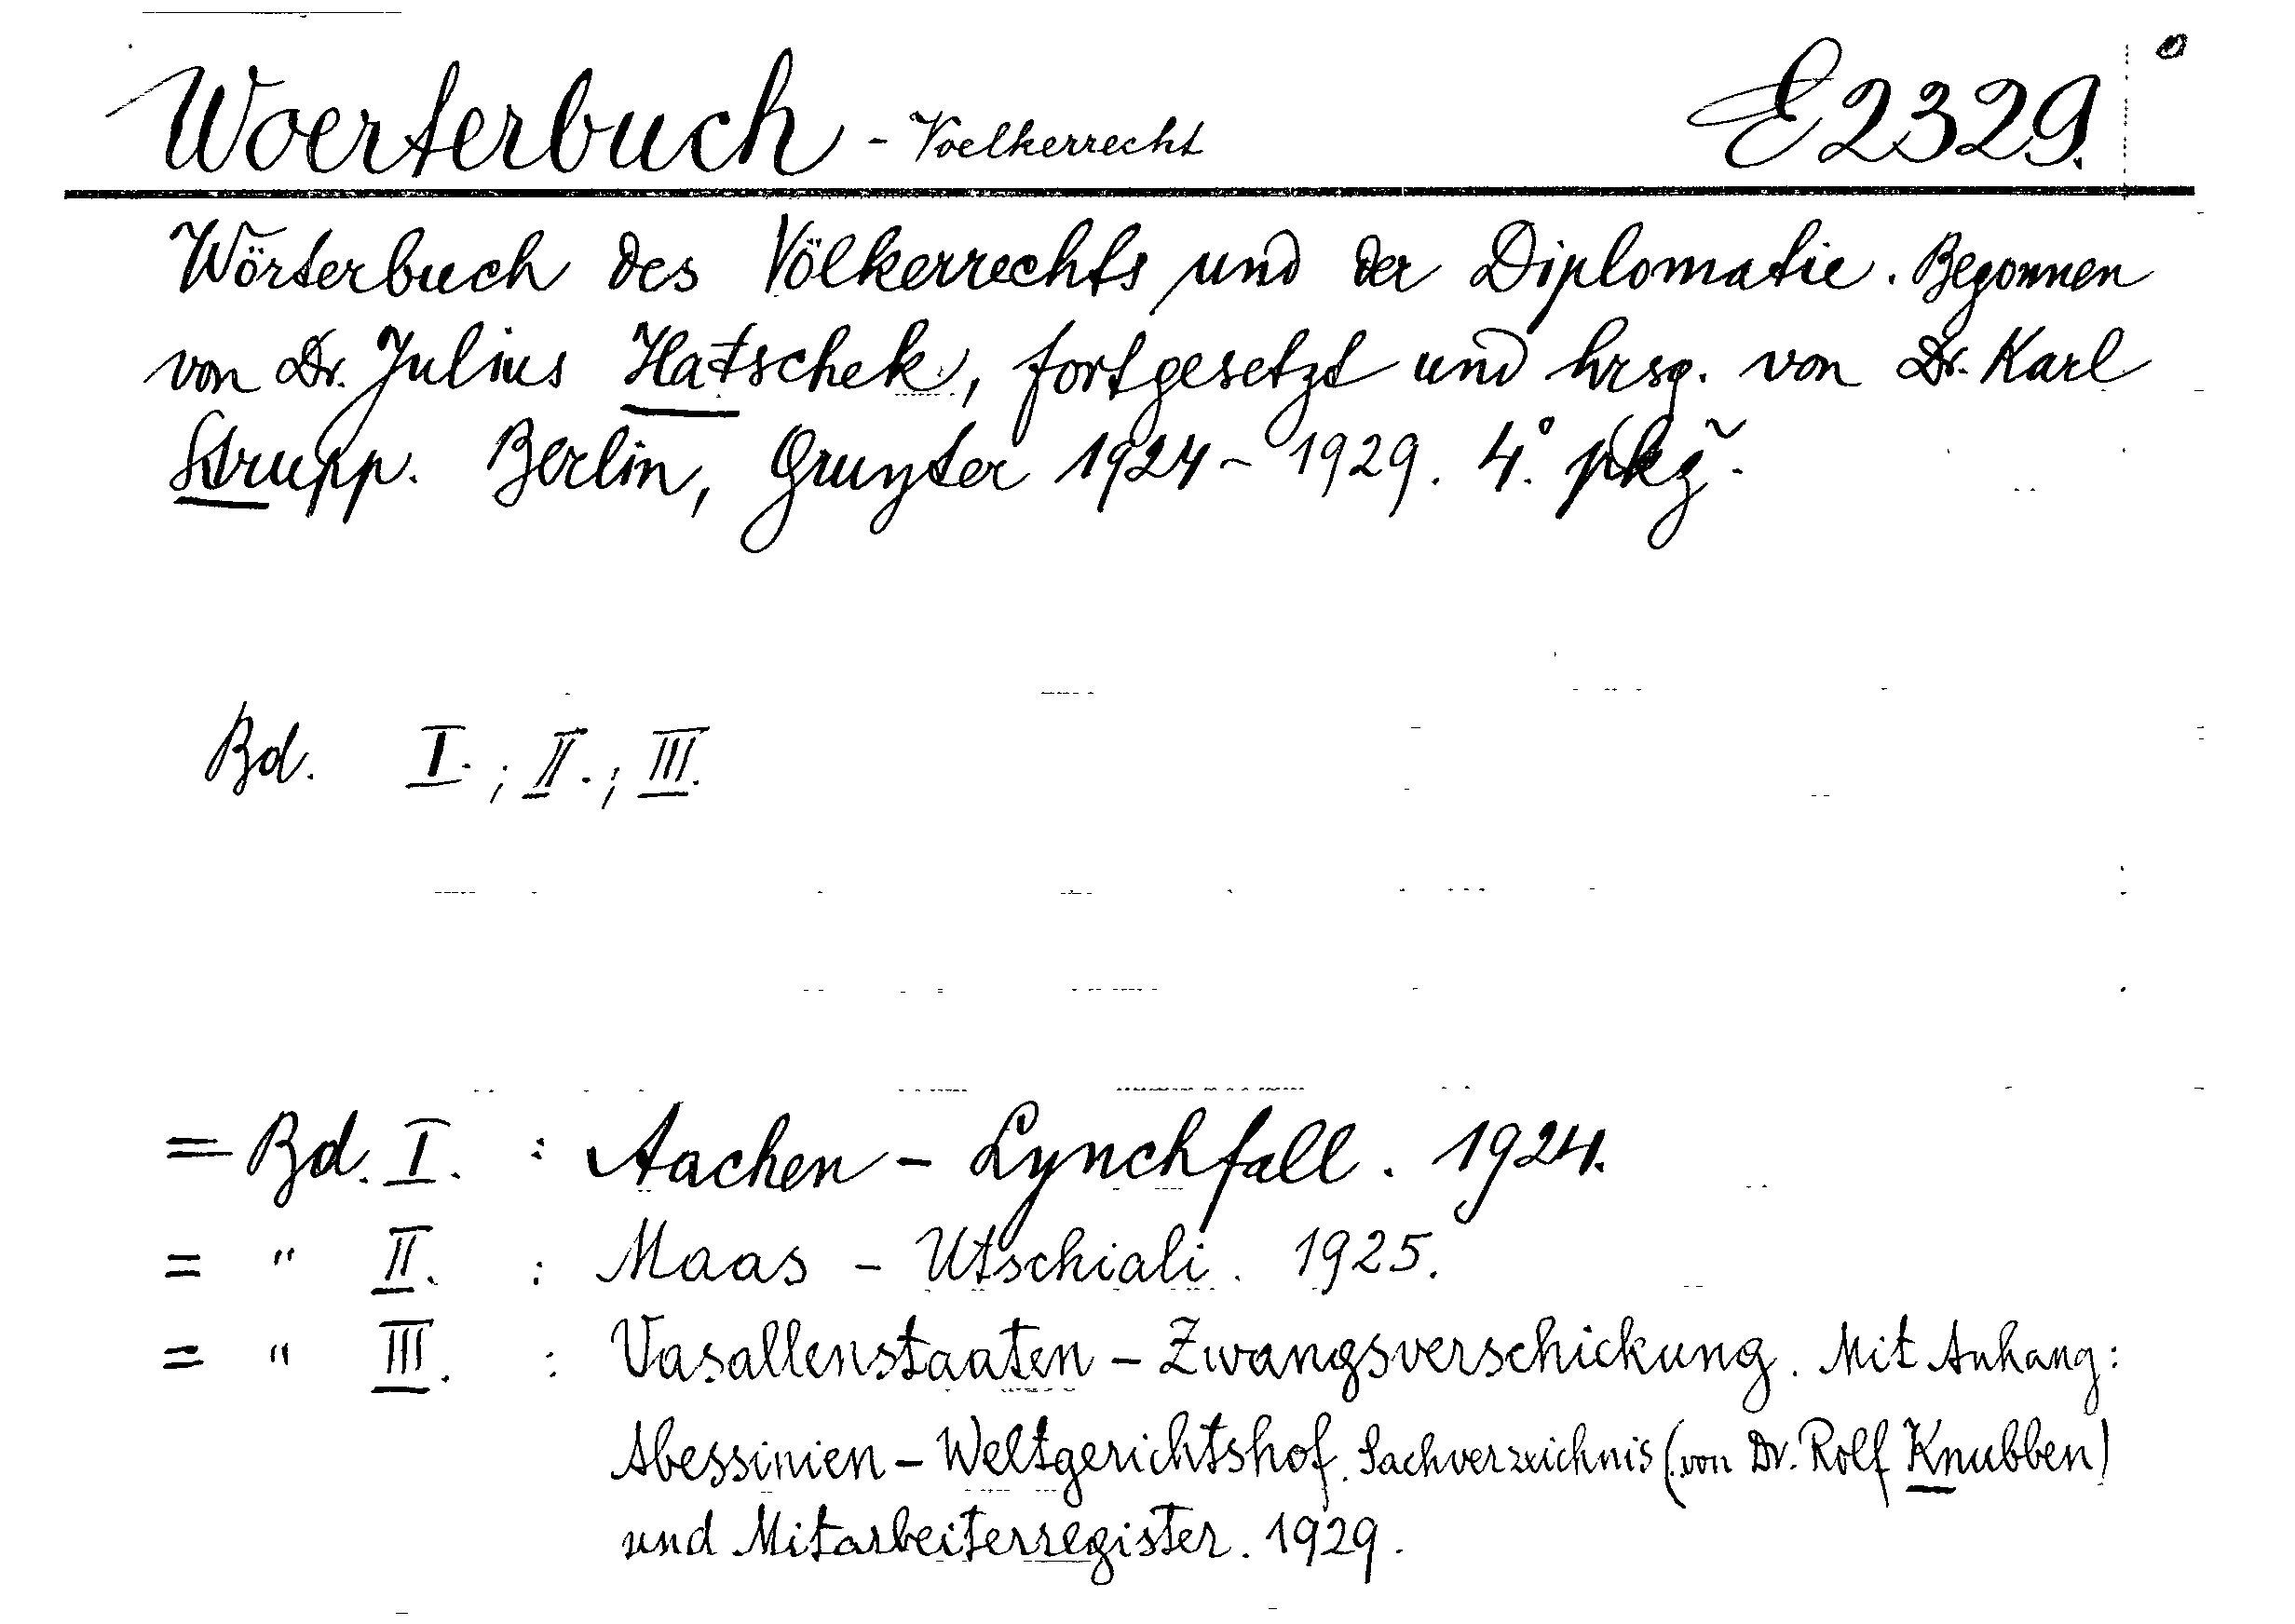 Woerterbuch - Voelkerrecht E2329.
Wörterbuch des Völkerrechts und der Diplomatie. Begonnen
von Dr. Julius Hatschek, fortgesetzt und hrsg. von Dr. Karl
Strupp. Berlin, Gruyter 1924-1929. 4°.
Bd. I.; II.; III.
= Bd. I. : Aachen - Lynchfall. 1924.
= " II. : Maas - Utschiali. 1925.
= " III. : Vasallenstaaten - Zwangsverschickung. Mit Anhang:
Abessinien - Weltgerichtshof. Sachverzeichnis (von Dr. Rolf Knubben)
und Mitarbeiterregister. 1929.